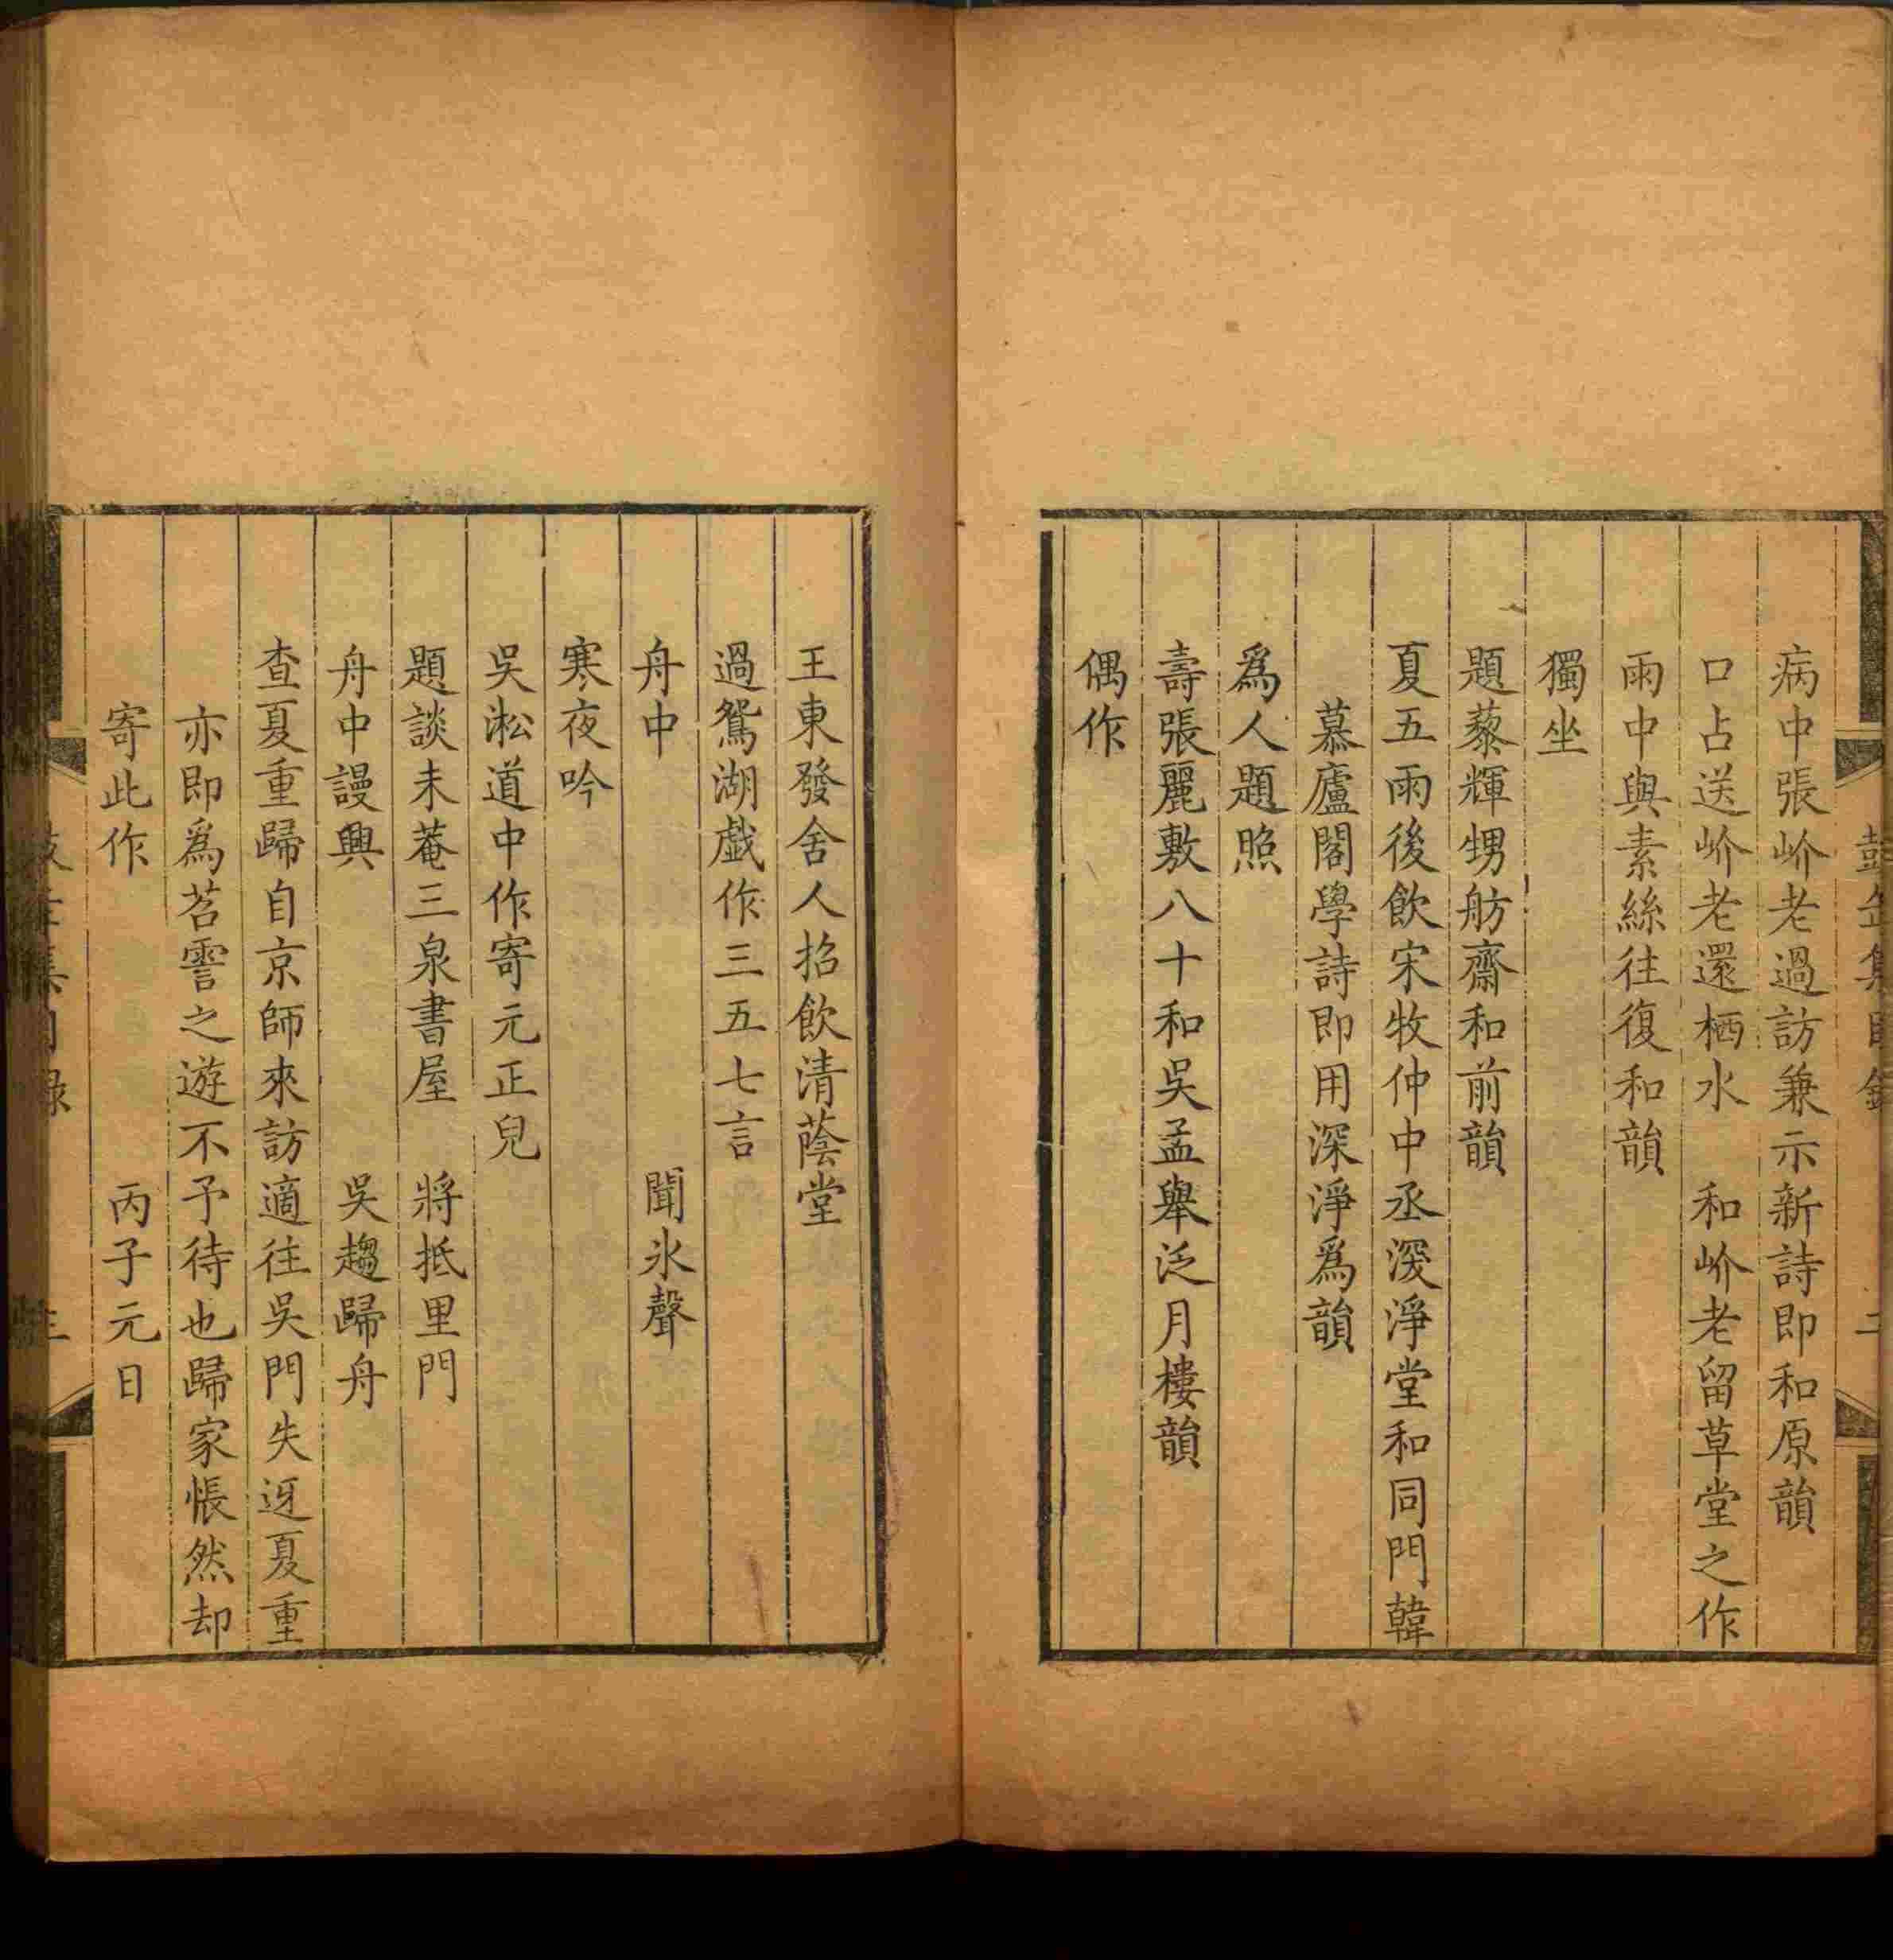 病中張岕老過訪兼示新詩即和原韻
口占送岕老還栖水　和岕老留草堂之作
雨中與素絲往復和韻
獨坐
題藜輝甥舫齋和前韻
夏五雨後飲宋牧仲中丞深淨堂和同門韓
慕廬閣學詩即用深淨爲韻
爲人題照
壽張麗敷八十和吳孟舉泛月樓韻
偶作
王東發舍人招飲清蔭堂
過鴛湖戯作三五七言
舟中　聞氷聲
寒夜吟
吳淞道中作寄元正兒
題談未菴三泉書屋　將抵里門
舟中謾興　吳趨歸舟
查夏重歸自京師來訪適往吳門失迓夏重
亦即爲苕霅之遊不予待也歸家悵然却
寄此作　丙子元日